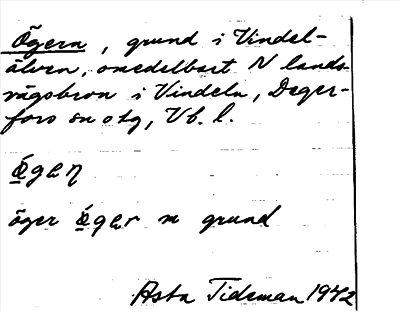 Ögern, grund i Vindel-
älven, omedelbart N lands-
vägsbron i Vindeln, Deger-
fors sn o tg, Vb. l.
ǿgan
öger ǿgar n grund
Asta Tideman 1942